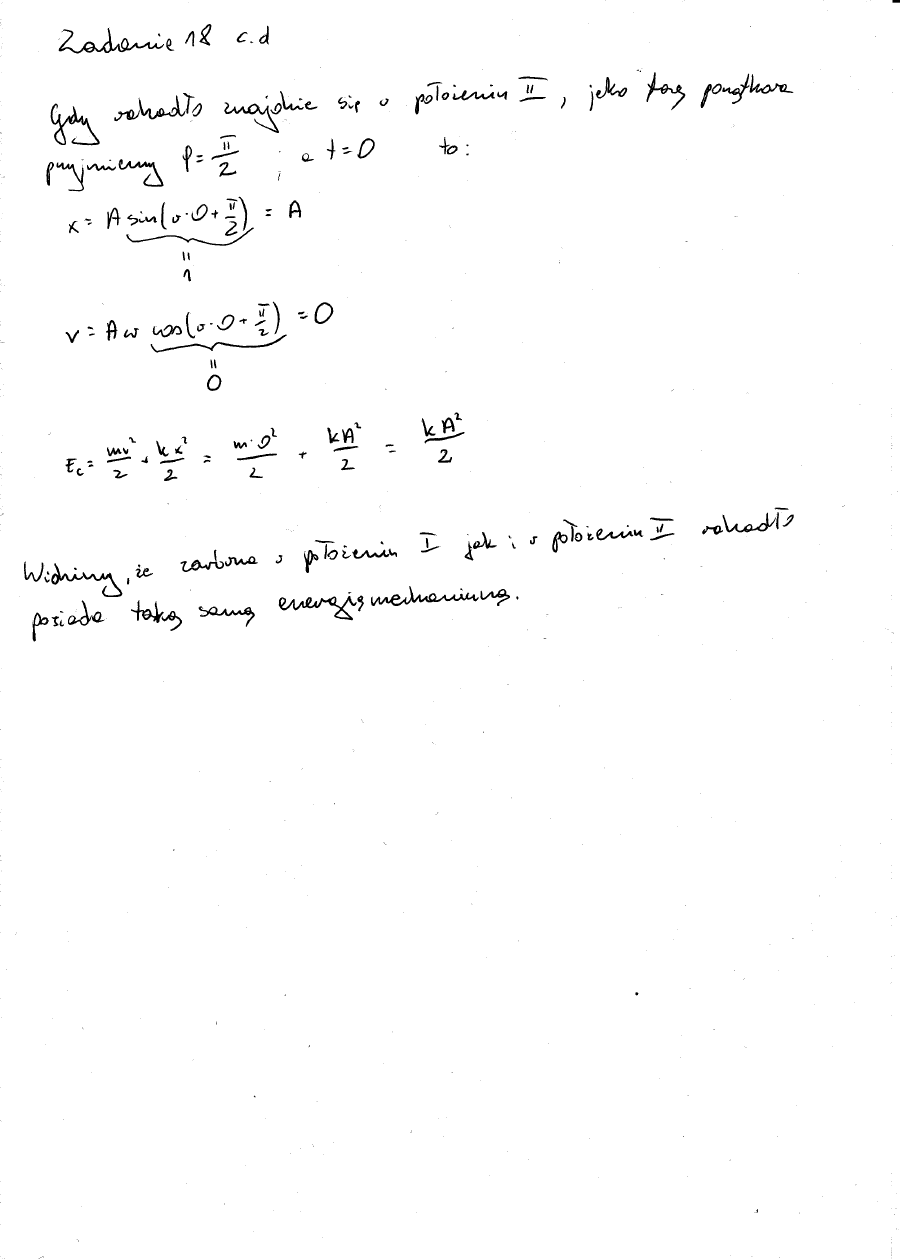 Zadanie 18 c.d
Gdy wahadło znajdzie się w położeniu II, jako fazę początkową
przyjmiemy φ = π/2, a t = 0 to:
x = A sin(ω·0 + π/2) = A
=
1
v = A ω cos(ω·0 + π/2) = 0
=
0
Ec = mv²/2 + kx²/2 = m·0²/2 + kA²/2 = kA²/2
Widzimy, że zarówno w położeniu I jak i w położeniu II wahadło
posiada taką samą energię mechaniczną.